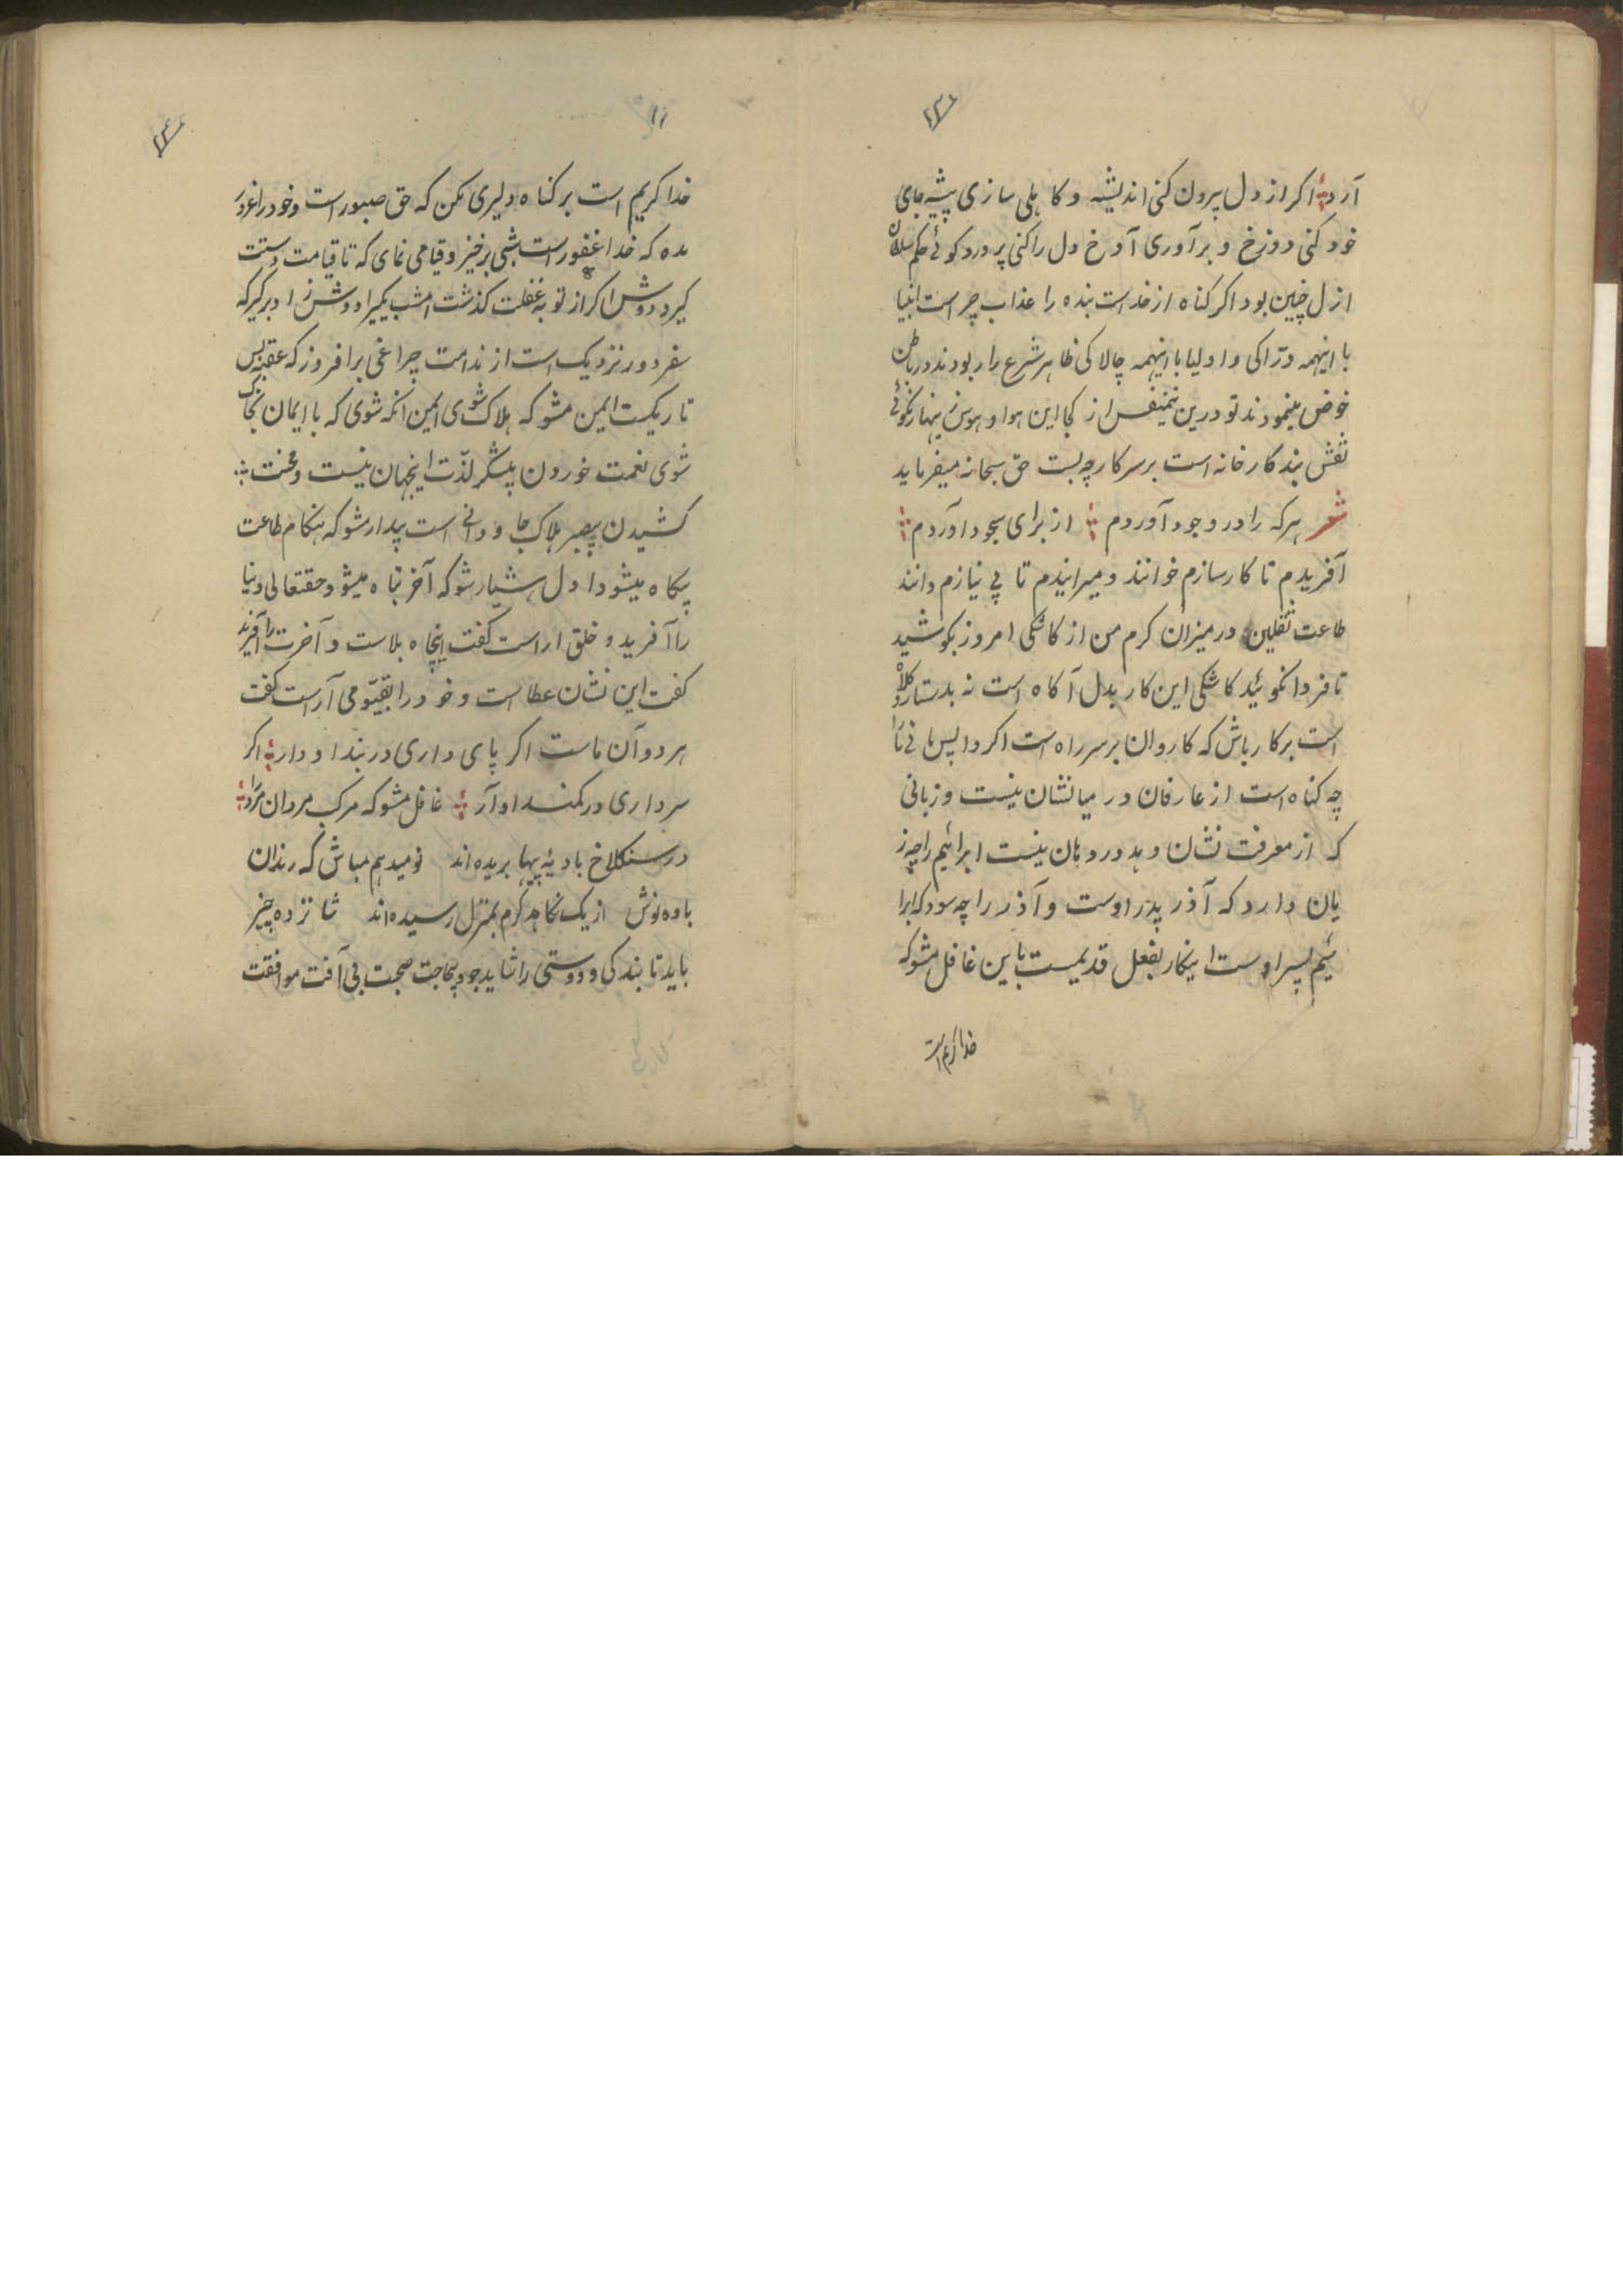 ۱۳۱
آرد اکر از دل بیرون کنی اندیشه و کاهلی سازی پیشه جای
خود کنی دوزخ و برآوری آوخ دل را کنی پر درد کوئے حکم سلطان
ازل چنین بود اکر کناه از خداست بنده را عذاب چراست انبیا
با اینهمه درّاکی و اولیا با اینهمه چالاکی ظاهر شرع را ربودند در باطن
خوض مینمودند تو درین نیمنفس از کجا این هوا و هوس زینهار نکوئے
نقش بند کارخانه است بر سر کار چه بست حق سبحانه میفرماید
شعر هر که را در وجود آوردم از برای سجود آوردم
آفریدم تا کارسازم خوانند و میرانیدم تا بی نیازم دانند
طاعت ثقلین در میزان کرم من از کاهکی امروز بکوشید
تا فردا نکوئید کاشکی این کار بدل آکاه است نه بدستار و کلاه
است برکار باش که کاروان بر سر راه است اکر واپس مانی ترا
چه کناه است از عارفان در میانشان نیست و زبانی
که از معرفت نشان دهد در دهان نیست ابرائیم را چه ز
یان دارد که آذر پدر اوست و آذر را چه سود که ابرا
ئیم پسر اوست اینکار بفعل قدیمست باین غافل مشو که
خدا کریم است
خدا کریم است بر کناه دلیری مکن که حق صبور است و خود را غرور
مده که خدا غفور است شبی برخیز و قیامی نمای که تا قیامت دستت
کیرد دوش اکر از تو بغفلت کذشت امشب بکیر دوش را در برکیر که
سفر دور نزدیک است از ندامت چراغی برافروز که عقبه بس
تاریکست ایمن مشو که هلاک شوی ایمن انکه شوی که با ایمان بخاک
شوی نعمت خوردن بیشکر لذّت اینجهان نیست و محنت
کشیدن بیصبر هلاک جاودانی است بیدار مشو که هنکام طاعت
بیکاه میشود ا دل هشیار شو که آخر تباه میشود حقتعالی دنیا
را آفرید و خلق اراست کفت اینجاه بلاست و آخرت را آفرید
کفت این نشان عطاست و خود را بقیّومی آراست کفت
هر دو آن ماست اکر پای داری در بند او دار اکر
سر داری در کمند او آر غافل مشو که مرکب مردان مرد را
در سنکلاخ بادیه پیها بریده اند نومید هم مباش که رندان
باده نوش از یک نکاه کرم بمنزل رسیده اند شانزده چیز
باید تا بندکی و دوستی را شاید جود بیحاجت صحبت بی آفت موافقت